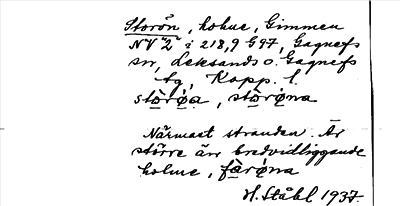 Storön, holme, Gimmen
NV "2" i 218,9 G97, Gagnefs
sn, Leksands o. Gagnefs
tg, Kopp. l.
störøa, störøna
Närmast stranden. Är
större än bredvidliggande
holme, färøna
H. Ståhl 1937.